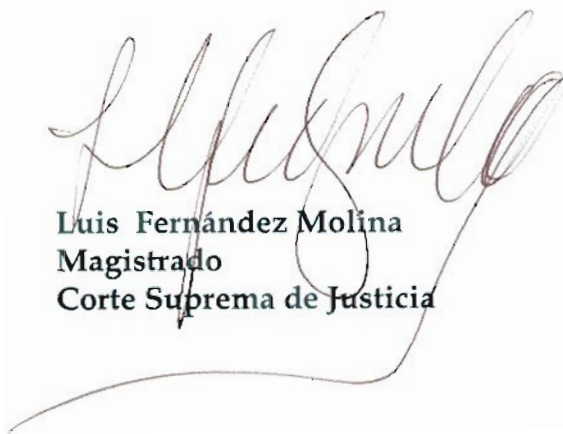 Luis Fernández Molina
Magistrado
Corte Suprema de Justicia